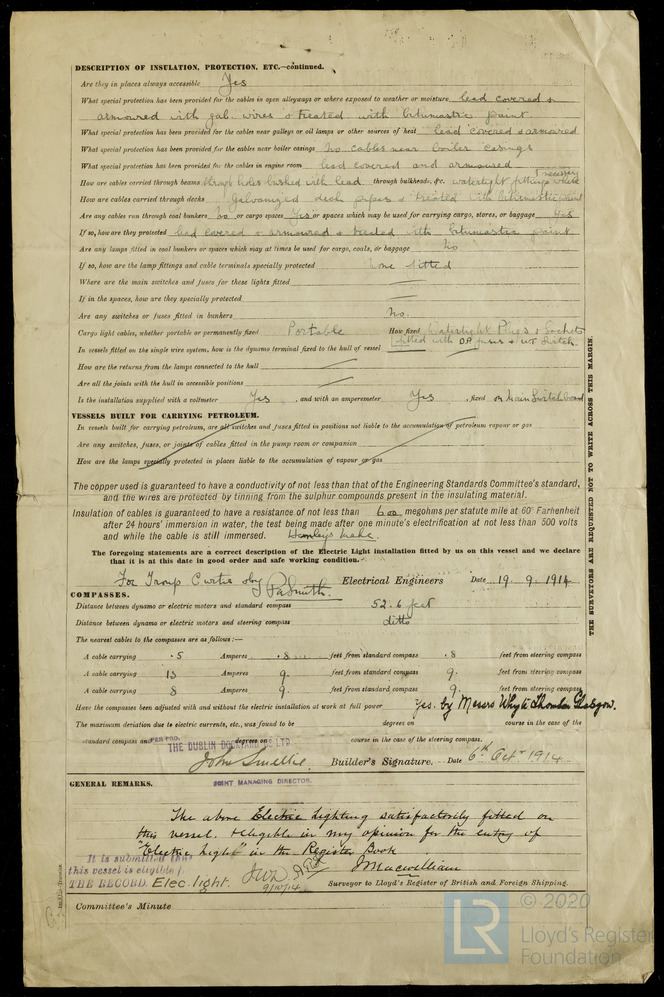 DESCRIPTION OF INSULATION, PROTECTION, ETC.—continued.
Are they in places always accessible Yes
What special protection has been provided for the cables in open alleyways or where exposed to weather or moisture lead covered &
armoured with gal. wires & treated with bitumastic paint.
What special protection has been provided for the cables near galleys or oil lamps or other sources of heat lead covered & armoured
What special protection has been provided for the cables near boiler casings No cables near boiler casings
What special protection has been provided for the cables in engine room lead covered and armoured
How are cables carried through beams through holes bushed with lead through bulkheads, &c. watertight fittings where necessary
How are cables carried through decks Galvanized deck pipes & treated with bitumastic paint
Are any cables run through coal bunkers No or cargo spaces Yes or spaces which may be used for carrying cargo, stores, or baggage Yes
If so, how are they protected lead covered & armoured & treated with bitumastic paint
Are any lamps fitted in coal bunkers or spaces which may at times be used for cargo, coals, or baggage No
If so, how are the lamp fittings and cable terminals specially protected None fitted
Where are the main switches and fuses for these lights fitted
If in the spaces, how are they specially protected
Are any switches or fuses fitted in bunkers No.
Cargo light cables, whether portable or permanently fixed Portable How fixed Watertight Plugs & Sockets
In vessels fitted on the single wire system, how is the dynamo terminal fixed to the hull of vessel fitted with D.P. fuses & WT Switch.
How are the returns from the lamps connected to the hull
Are all the joints with the hull in accessible positions
Is the installation supplied with a voltmeter Yes , and with an amperemeter Yes , fixed on Main Switchboard
VESSELS BUILT FOR CARRYING PETROLEUM.
In vessels built for carrying petroleum, are all switches and fuses fitted in positions not liable to the accumulation of petroleum vapour or gas
Are any switches, fuses, or joints of cables fitted in the pump room or companion
How are the lamps specially protected in places liable to the accumulation of vapour or gas
The copper used is guaranteed to have a conductivity of not less than that of the Engineering Standards Committee's standard,
and the wires are protected by tinning from the sulphur compounds present in the insulating material.
Insulation of cables is guaranteed to have a resistance of not less than 600 megohms per statute mile at 60° Farhenheit
after 24 hours' immersion in water, the test being made after one minute's electrification at not less than 500 volts
and while the cable is still immersed. Henleys make.
The foregoing statements are a correct description of the Electric Light installation fitted by us on this vessel and we declare
that it is at this date in good order and safe working condition.
For Troup Curtis & Coy Electrical Engineers Date 19. 9. 1914
COMPASSES.
Distance between dynamo or electric motors and standard compass 52.6 feet
Distance between dynamo or electric motors and steering compass ditto
The nearest cables to the compasses are as follows:—
A cable carrying .5 Amperes .8 feet from standard compass .8 feet from steering compass
A cable carrying 13 Amperes 9. feet from standard compass 9. feet from steering compass
A cable carrying 8 Amperes 9. feet from standard compass 9. feet from steering compass
Have the compasses been adjusted with and without the electric installation at work at full power Yes. by Messrs Whyte Thomson Glasgow.
The maximum deviation due to electric currents, etc., was found to be degrees on course in the case of the
standard compass and degrees on course in the case of the steering compass.
PER PRO.
THE DUBLIN DOCKYARD CO LTD
John Smellie. Builder's Signature. Date 6th Octr 1914
JOINT MANAGING DIRECTOR.
GENERAL REMARKS.
The above Electric Lighting satisfactorily fitted on
this vessel. & eligible in my opinion for the entry of
"Electric Light" in the Register Book
It is submitted that
this vessel is eligible
THE RECORD. Elec. light.
9/10/14
J Macwilliam
Surveyor to Lloyd's Register of British and Foreign Shipping.
Committee's Minute
THE SURVEYORS ARE REQUESTED NOT TO WRITE ACROSS THIS MARGIN.
© 2020
LR
Lloyd's Register
Foundation